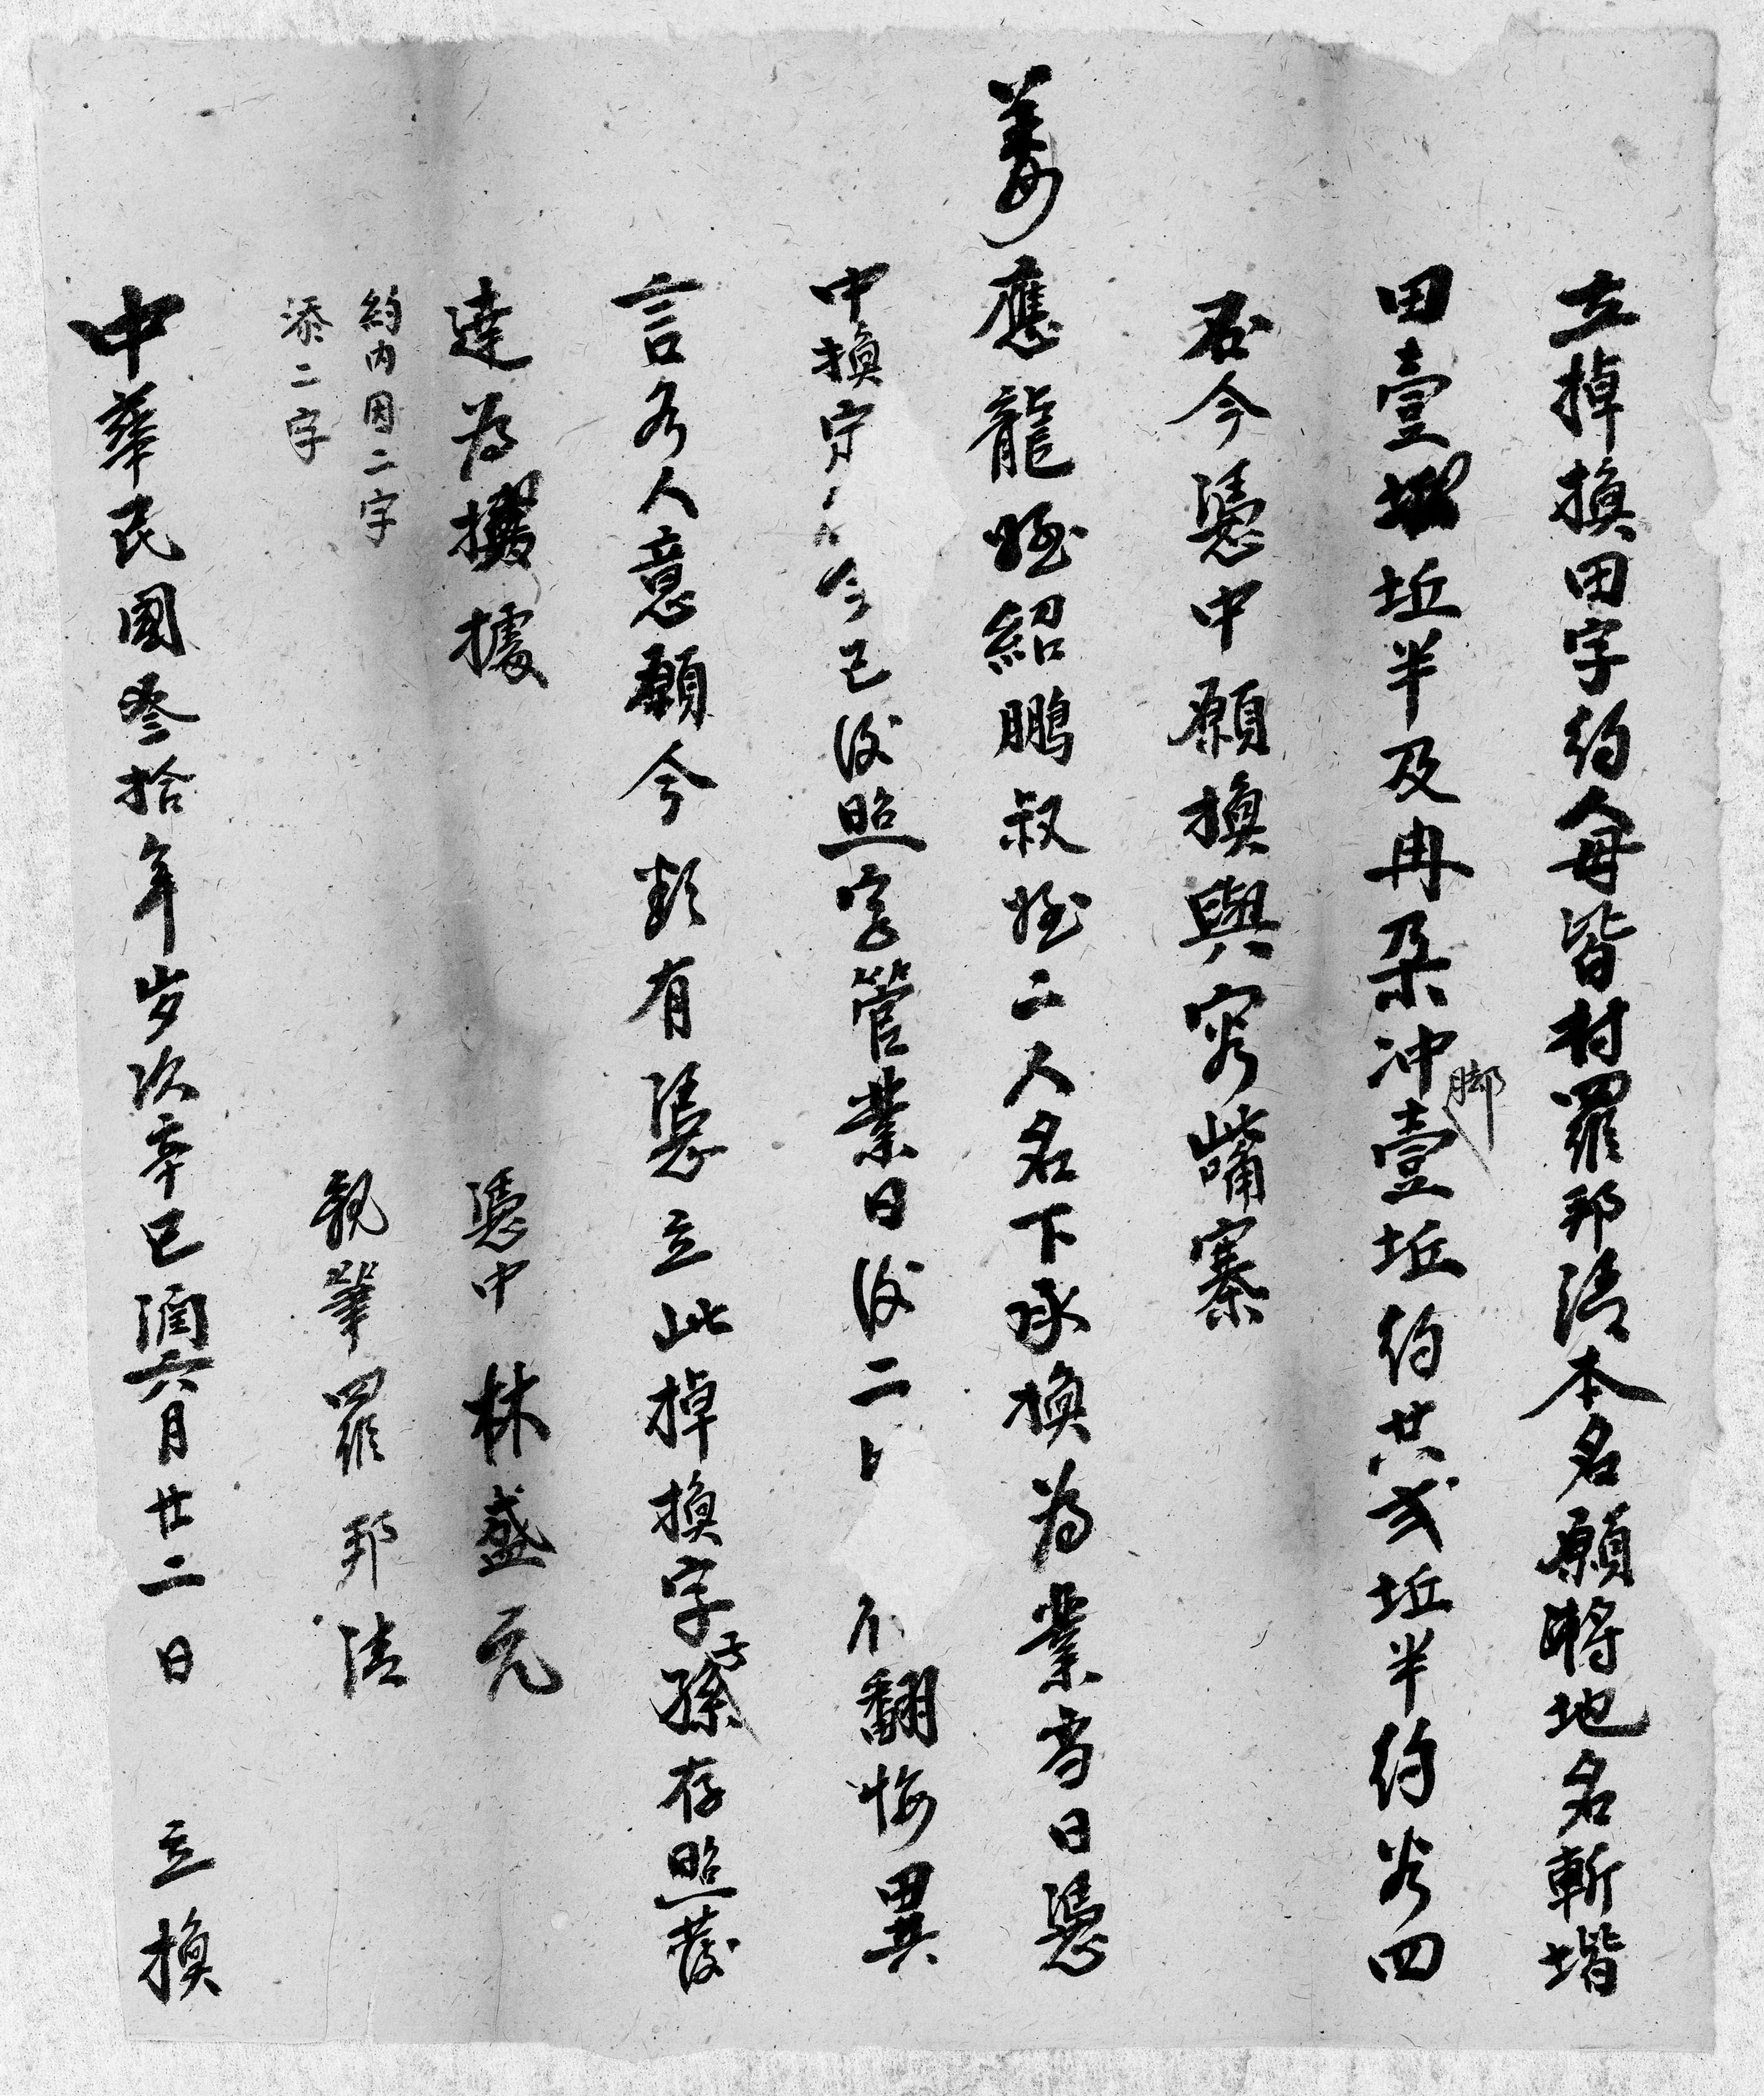 立掉換田字約人毋皆村羅邦清本名願將地名斬堦
田壹坵半及冉朶冲脚壹坵約共弍坵半約谷四
石今憑中願換與窮嘴寨
姜應龍姪紹鵬叔姪二人名下承換為業當日憑
中換字 今已後照字管業日後二 不 翻悔異
言各人意願今欲有憑立此掉換字子孫存照發
達為據
憑中 林盛元
約内因二字
添二字
親筆 羅邦清
中華民國叄拾年岁次辛巳潤六月廿二日 立換